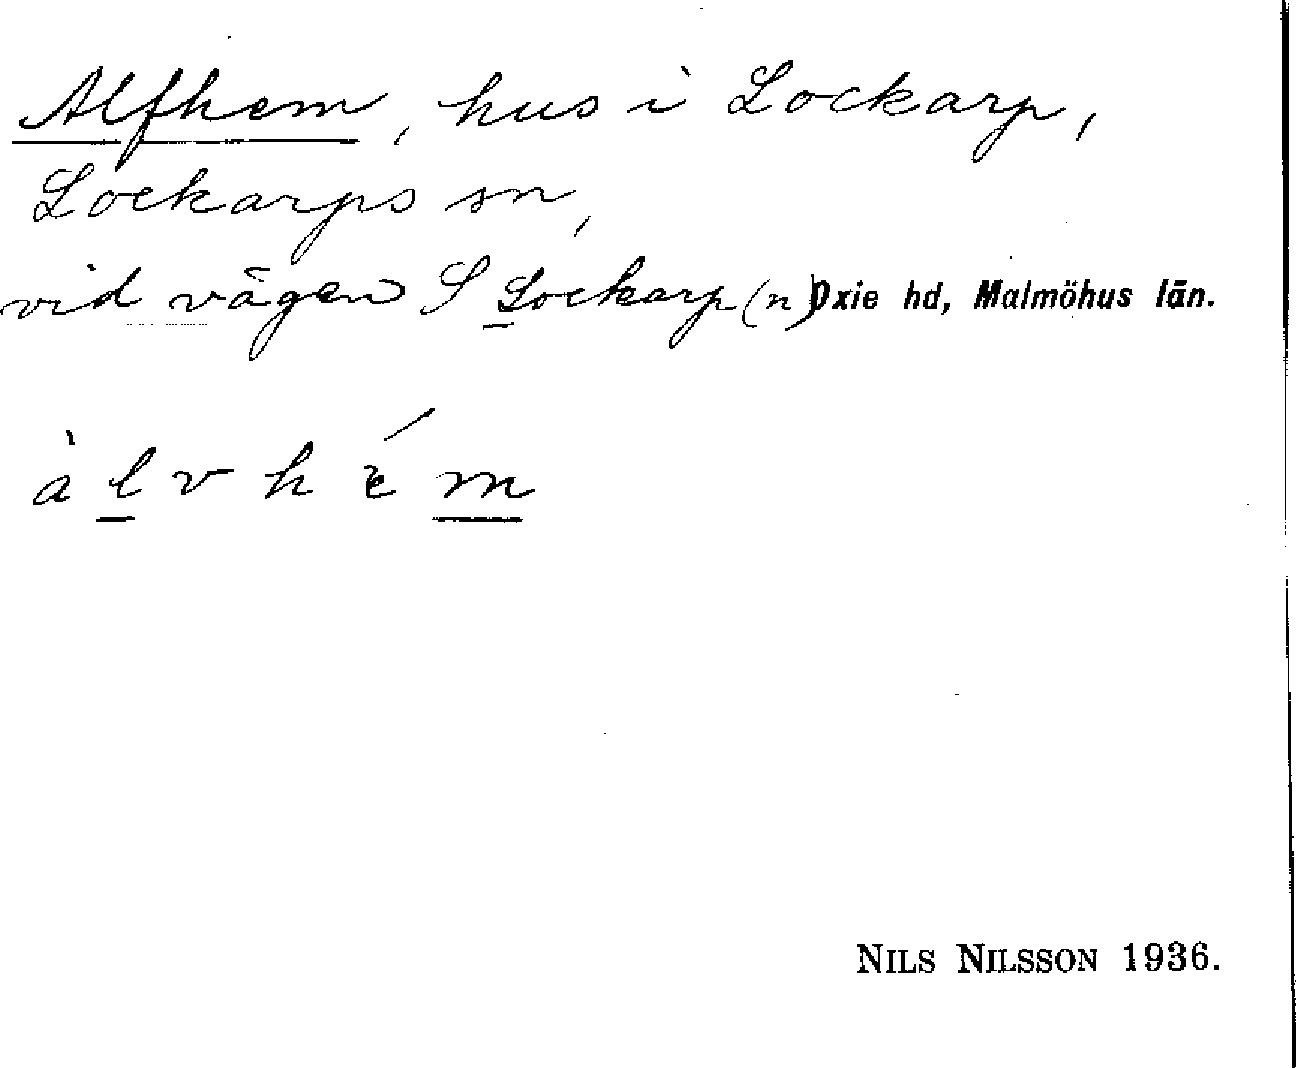 Alfhem, hus i Lockarp,
Lockarps sn,
vid vägen S Lockarp (n) Oxie hd, Malmöhus län.
à l v h é m
NILS NILSSON 1936.